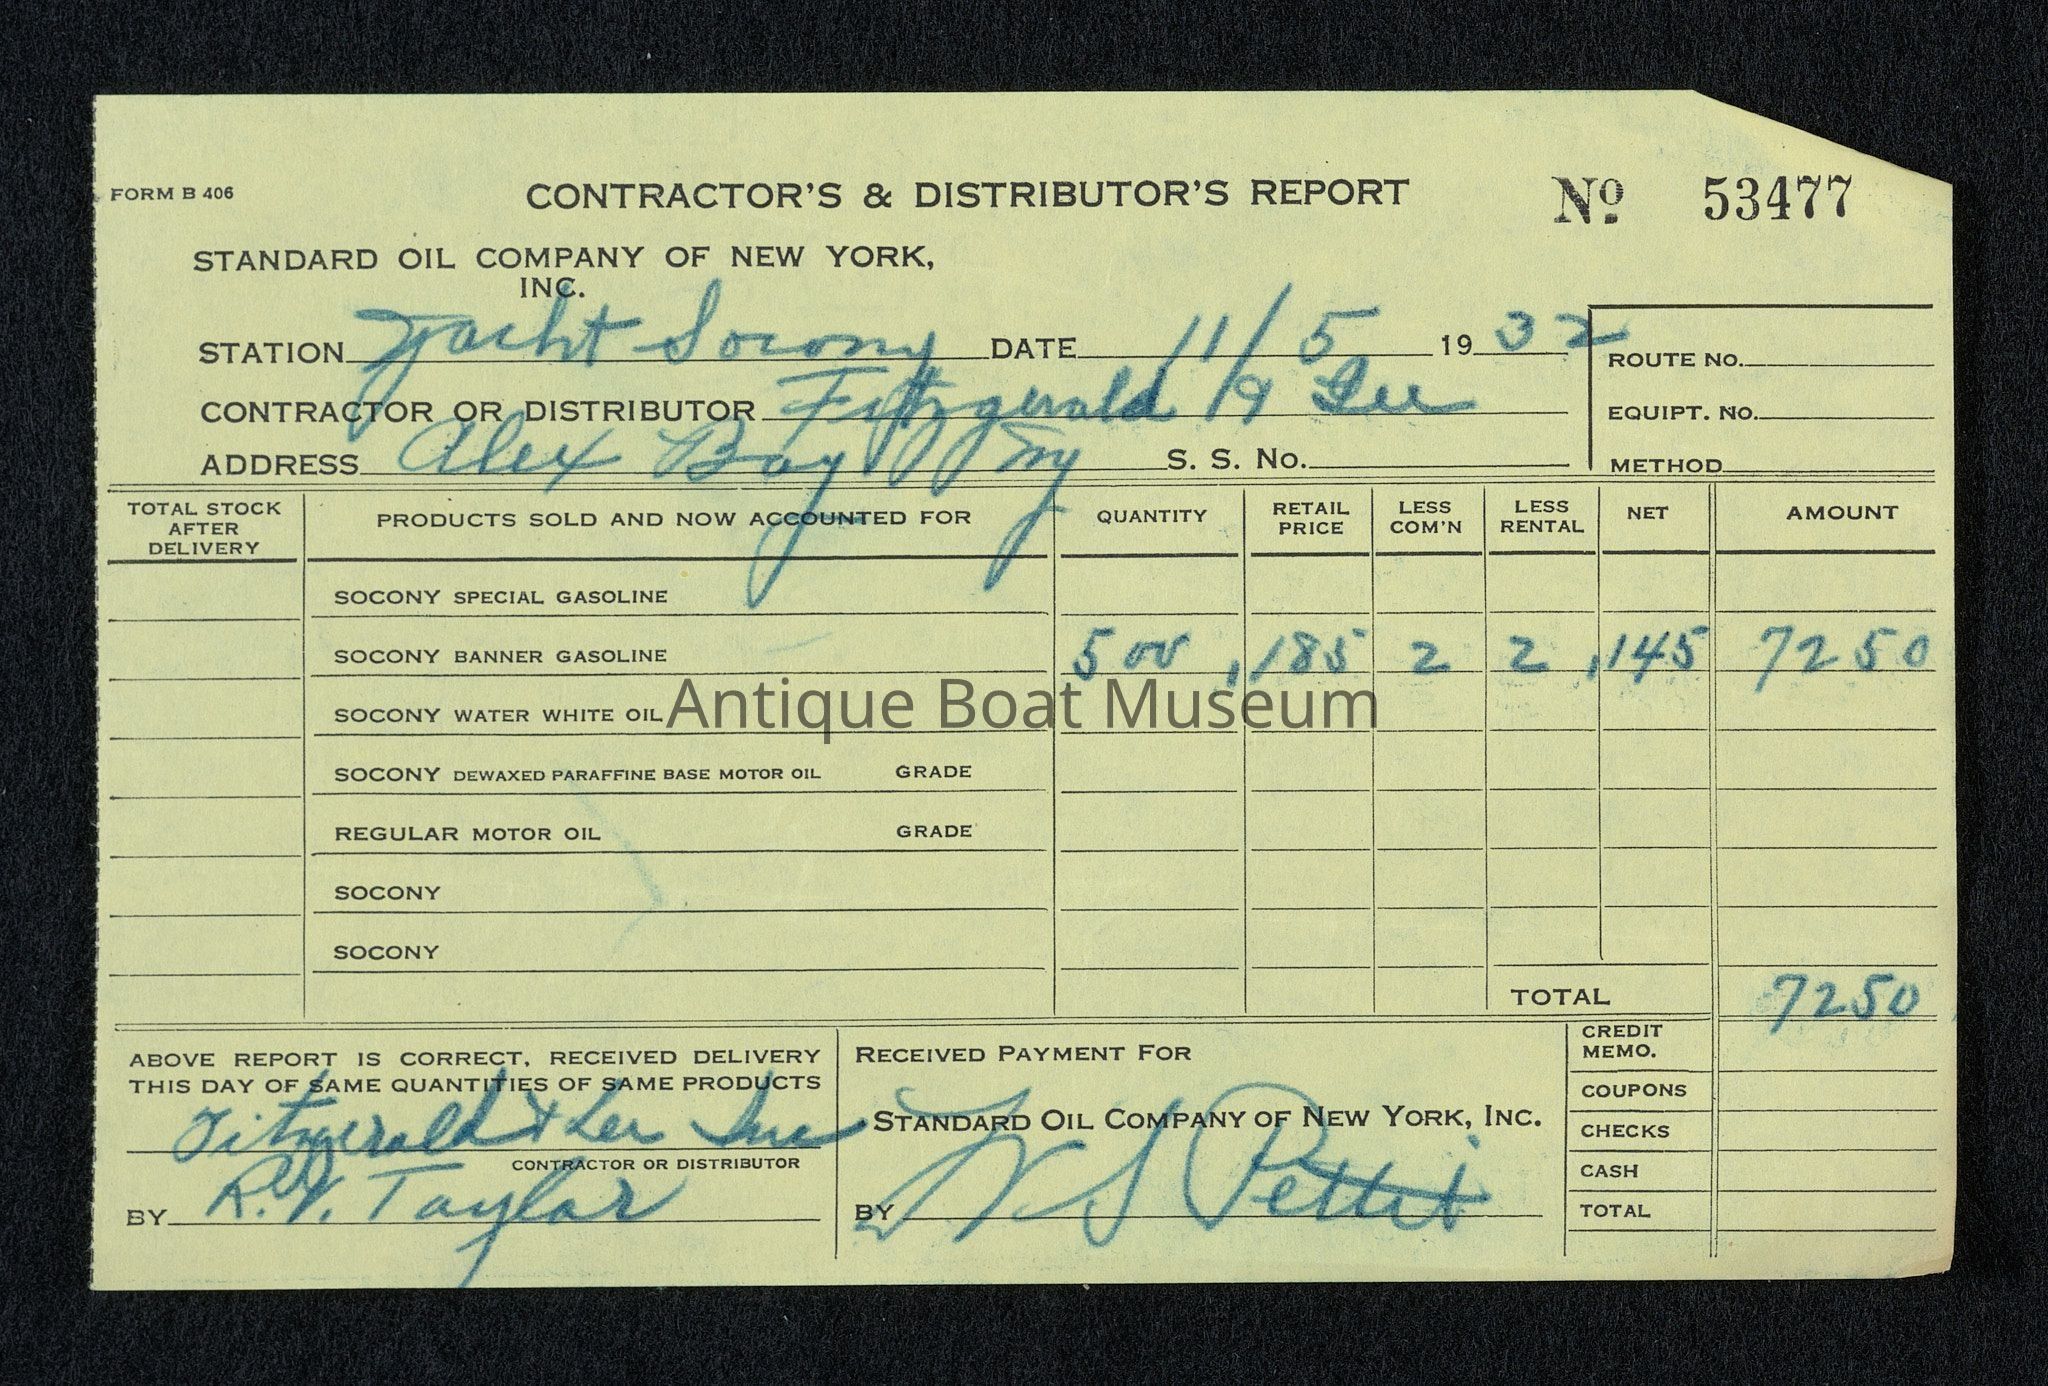 FORM B 406 CONTRACTOR'S & DISTRIBUTOR'S REPORT No 53477
STANDARD OIL COMPANY OF NEW YORK,
INC.
STATION Yacht Socony DATE 11/5 1932 ROUTE NO.
CONTRACTOR OR DISTRIBUTOR Fitzgerald & Lee EQUIPT. NO.
ADDRESS Alex Bay NY S. S. NO. METHOD
TOTAL STOCK AFTER DELIVERY PRODUCTS SOLD AND NOW ACCOUNTED FOR QUANTITY RETAIL PRICE LESS COM'N LESS RENTAL NET AMOUNT
SOCONY SPECIAL GASOLINE
SOCONY BANNER GASOLINE 500 .185 2 2 .145 72 50
SOCONY WATER WHITE OIL
Antique Boat Museum
SOCONY DEWAXED PARAFFINE BASE MOTOR OIL GRADE
REGULAR MOTOR OIL GRADE
SOCONY
SOCONY
TOTAL 72 50
ABOVE REPORT IS CORRECT, RECEIVED DELIVERY
THIS DAY OF SAME QUANTITIES OF SAME PRODUCTS
Fitzgerald & Lee Inc
CONTRACTOR OR DISTRIBUTOR
BY R.V. Taylor
RECEIVED PAYMENT FOR
STANDARD OIL COMPANY OF NEW YORK, INC.
BY Pettit
CREDIT MEMO.
COUPONS
CHECKS
CASH
TOTAL